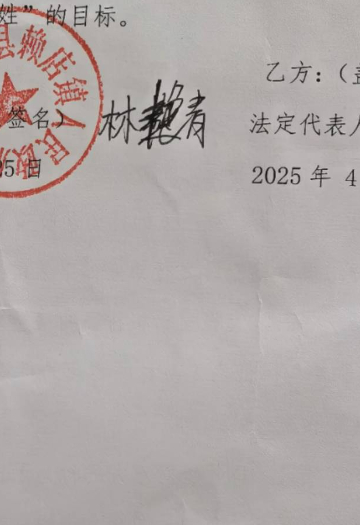 姓”的目标。
县赖店镇人民政
乙方：（盖
签名）
林 青
法定代表人
5日
2025 年 4